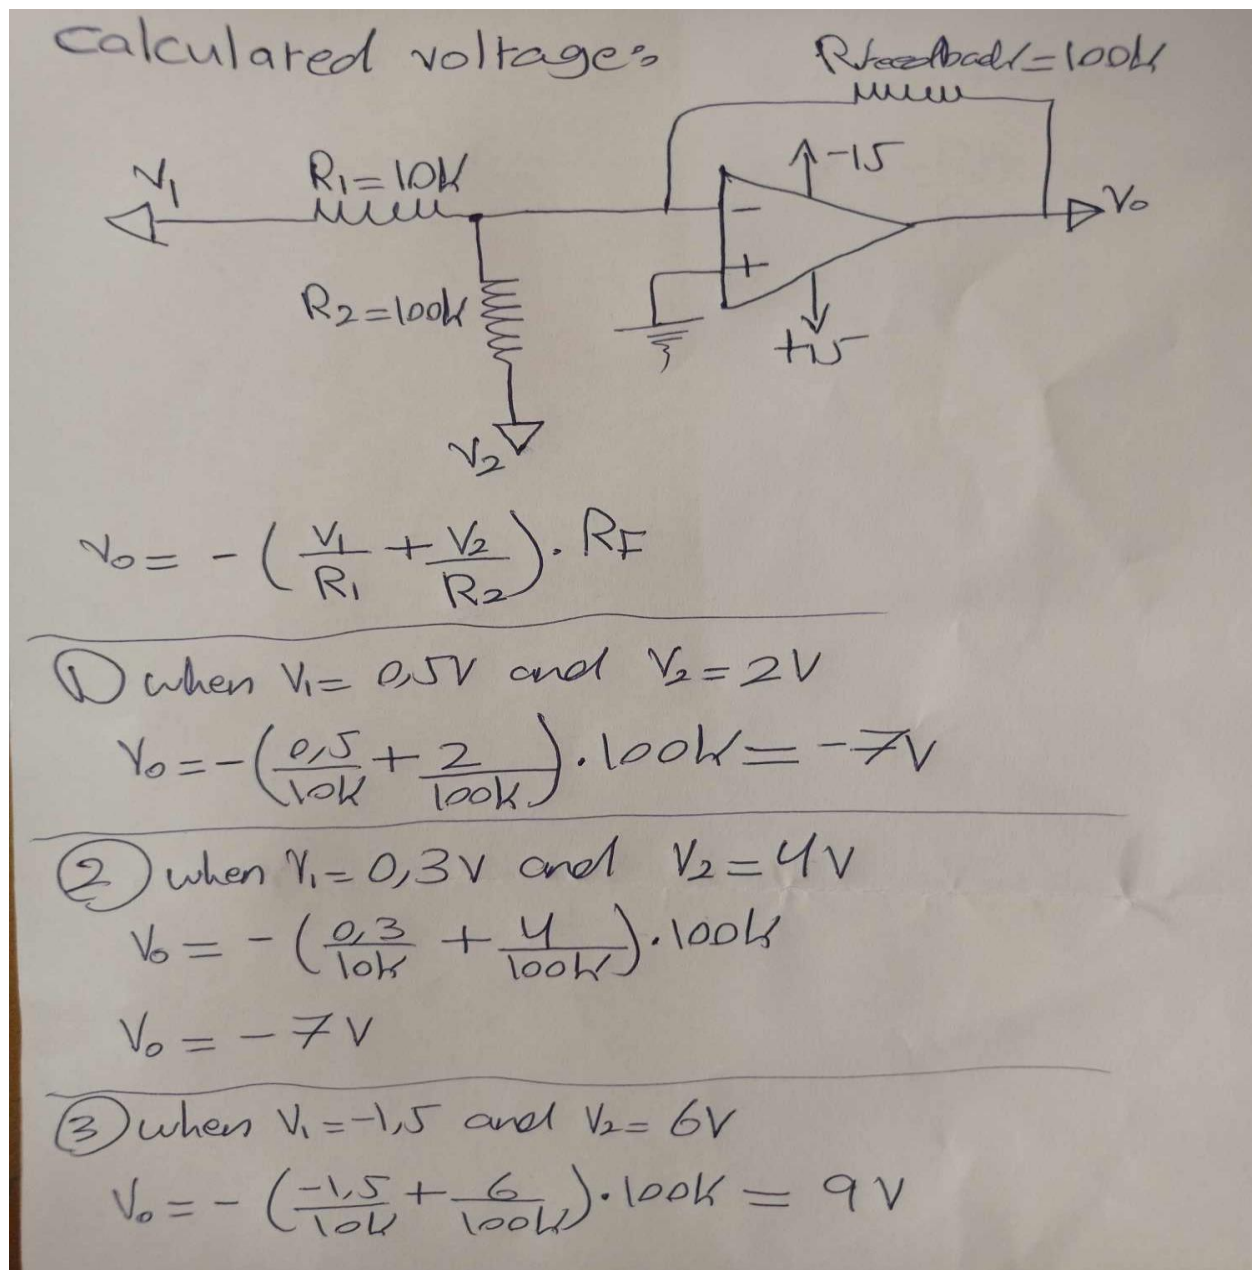 Calculated voltages
Rfeedback=100k
V1
R1=10k
-15
-
Vo
+
R2=100k
+15
V2
Vo = -(V1/R1 + V2/R2). RF
① when V1= 0,5V and V2=2V
Vo=-(0,5/10k + 2/100k).100k= -7V
② when V1=0,3V and V2=4V
Vo = -(0,3/10k + 4/100k).100k
Vo = -7V
③ when V1=-1,5 and V2=6V
Vo=-(-1,5/10k + 6/100k).100k = 9V